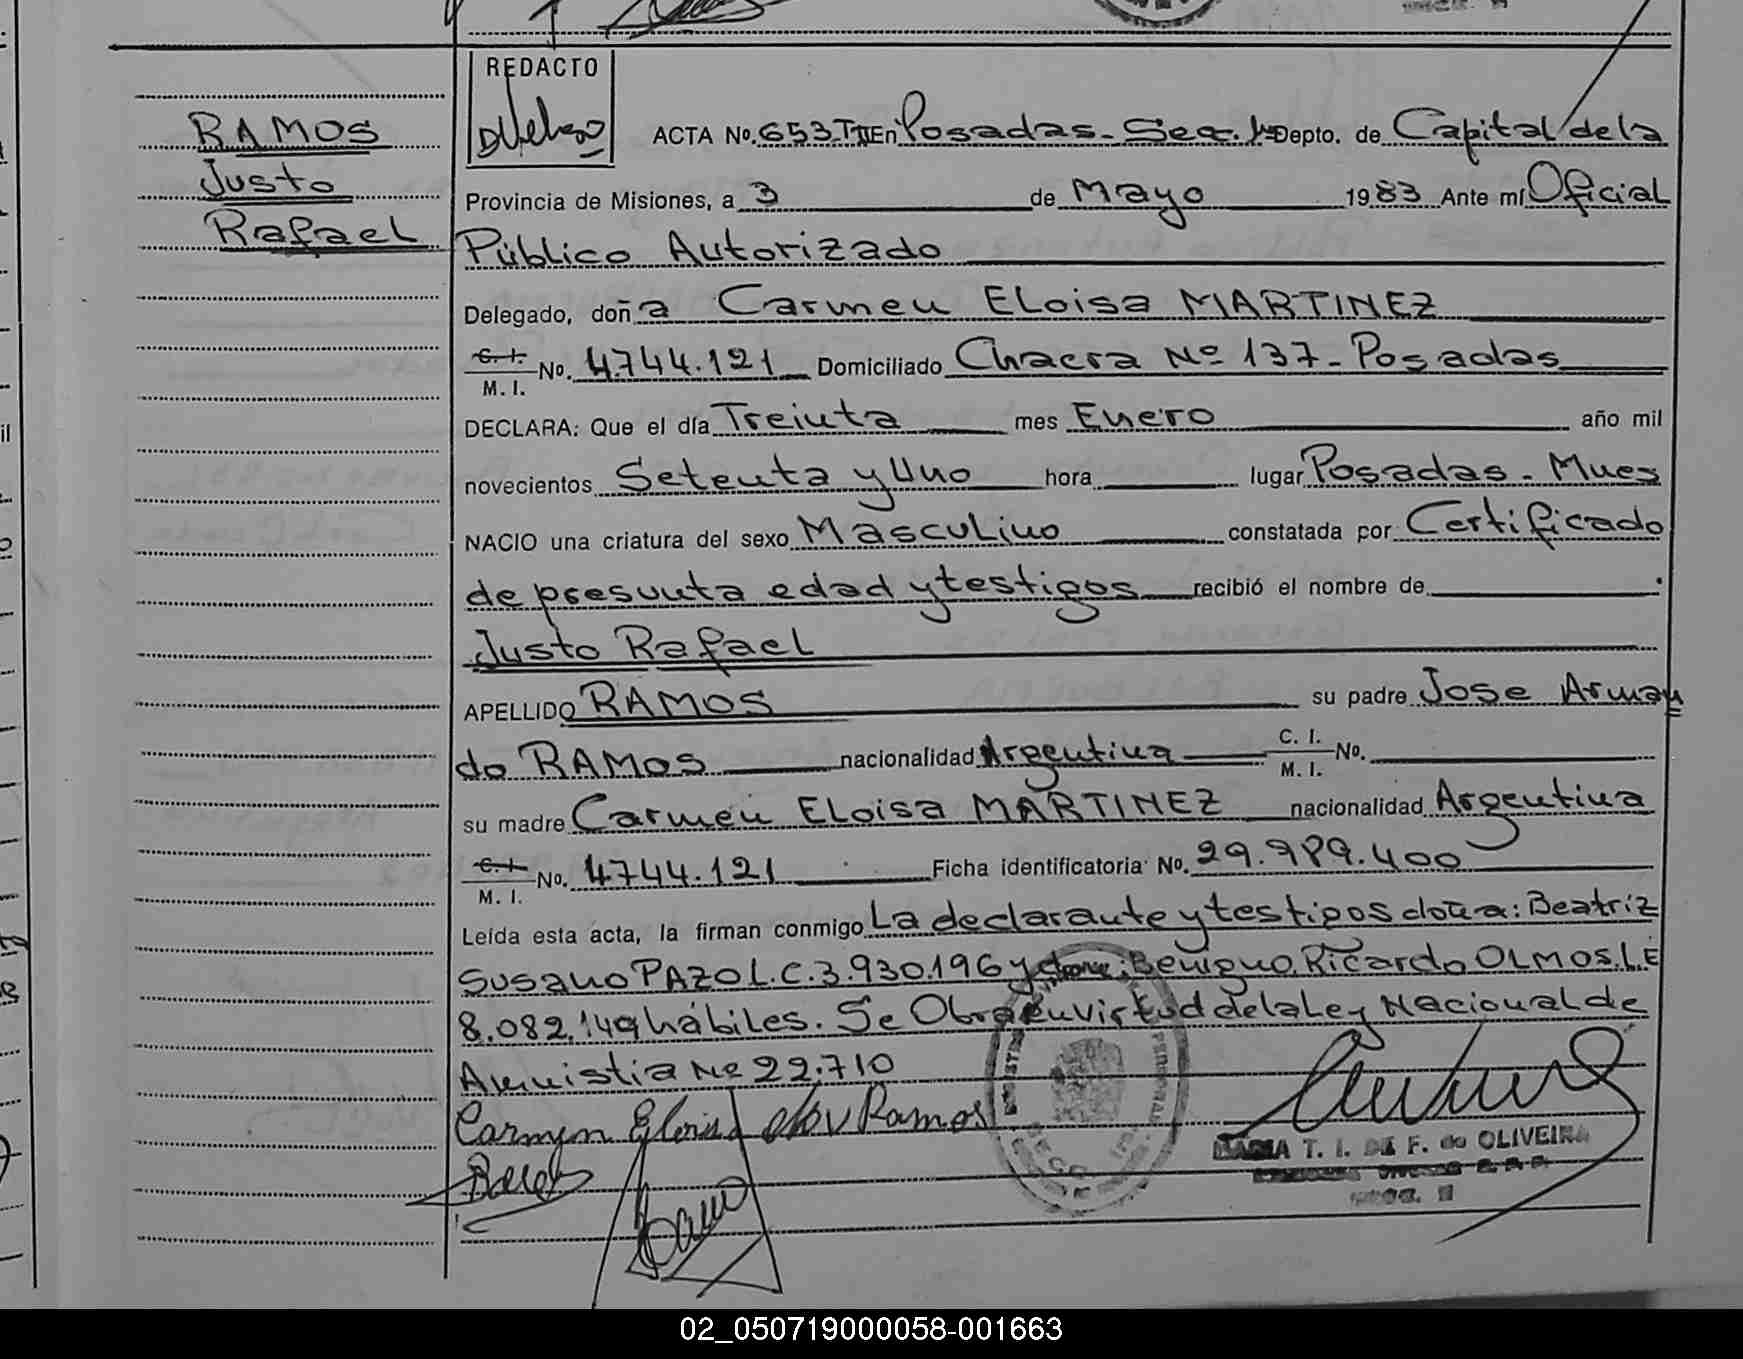 REDACTO
RAMOS
Justo
Rafael
ACTA No. 653.TII En Posadas - Secc. 1a Depto. de Capital de la
Provincia de Misiones, a 3 de Mayo 1983 Ante mí Oficial
Público Autorizado
Delegado, doña Carmen ELoisa MARTINEZ
C. I. M. I. No. 4.744.121 Domiciliado Chacra Nº 137 - Posadas
DECLARA: Que el día Treinta mes Enero año mil
novecientos Setenta y Uno hora lugar Posadas - Mnes
NACIO una criatura del sexo Masculino constatada por Certificado
de presunta edad y testigos recibió el nombre de
Justo Rafael
APELLIDO RAMOS su padre Jose Arman
do RAMOS nacionalidad Argentina C. I. M. I. No.
su madre Carmen ELoisa MARTINEZ nacionalidad Argentina
C. I. M. I. No. 4.744.121 Ficha identificatoria No. 29.989.400
Leída esta acta, la firman conmigo La declarante y testigos doña: Beatriz
Susano PAZO L.C. 3.930.196 y don: Benigno Ricardo OLMOS. L.E
8.082.149 hábiles. Se Obra en virtud de la Ley Nacional de
Amnistia Nº 22.710
Carmen Eloisa de Ramos
MARIA T. I. DE F. de OLIVEIRA
02_050719000058-001663